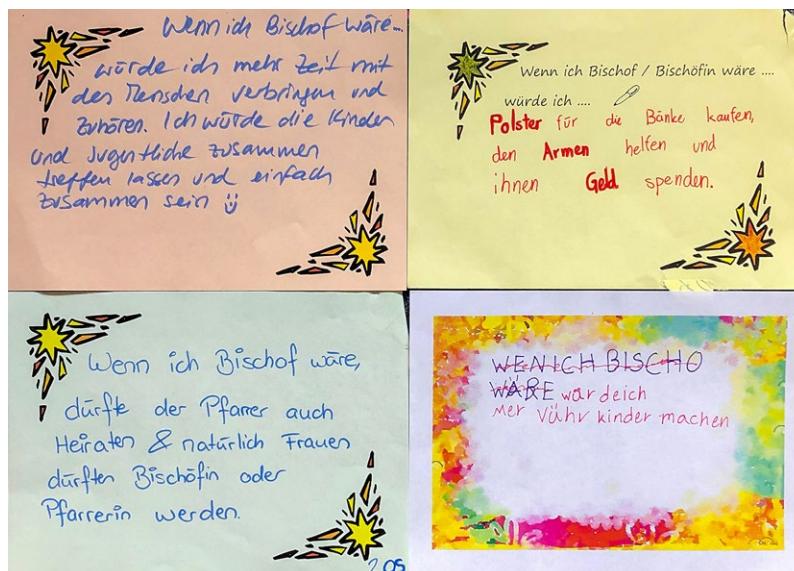 Wenn ich Bischof wäre...
würde ich mehr Zeit mit
den Menschen verbringen und
zuhören. Ich würde die Kinder
und Jugentliche zusammen
treffen lassen und einfach
zusammen sein
Wenn ich Bischof / Bischöfin wäre ....
würde ich ....
Polster für die Bänke kaufen,
den Armen helfen und
ihnen Geld spenden.
Wenn ich Bischof wäre,
dürfte der Pfarrer auch
Heiraten & natürlich Frauen
dürften Bischöfin oder
Pfarrerin werden.
WENICH BISCHO
WÄRE würdeich
Mer Vühr kinder machen